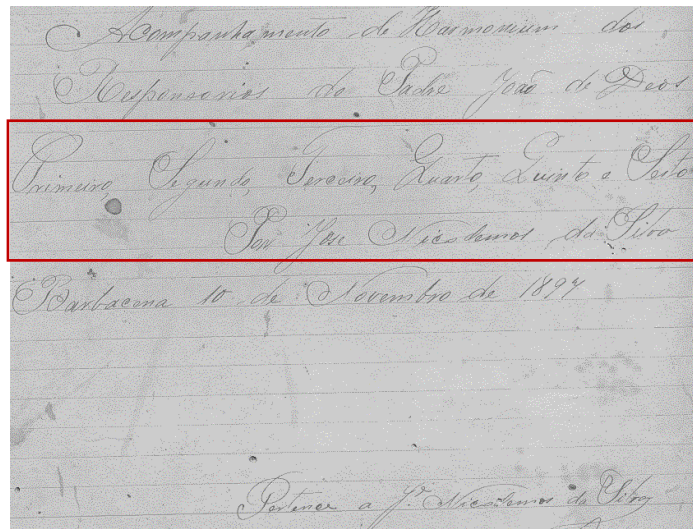 Acompanhamento de Harmonium dos
Responsorios do Padre João de Deos
Primeiro, Segundo, Terceiro, Quarto, Quinto e Seisto
Por José Nicodemos da Silva
Barbacena 10 de Novembro de 1897
Pertence a J.e Nicodemos da Silva